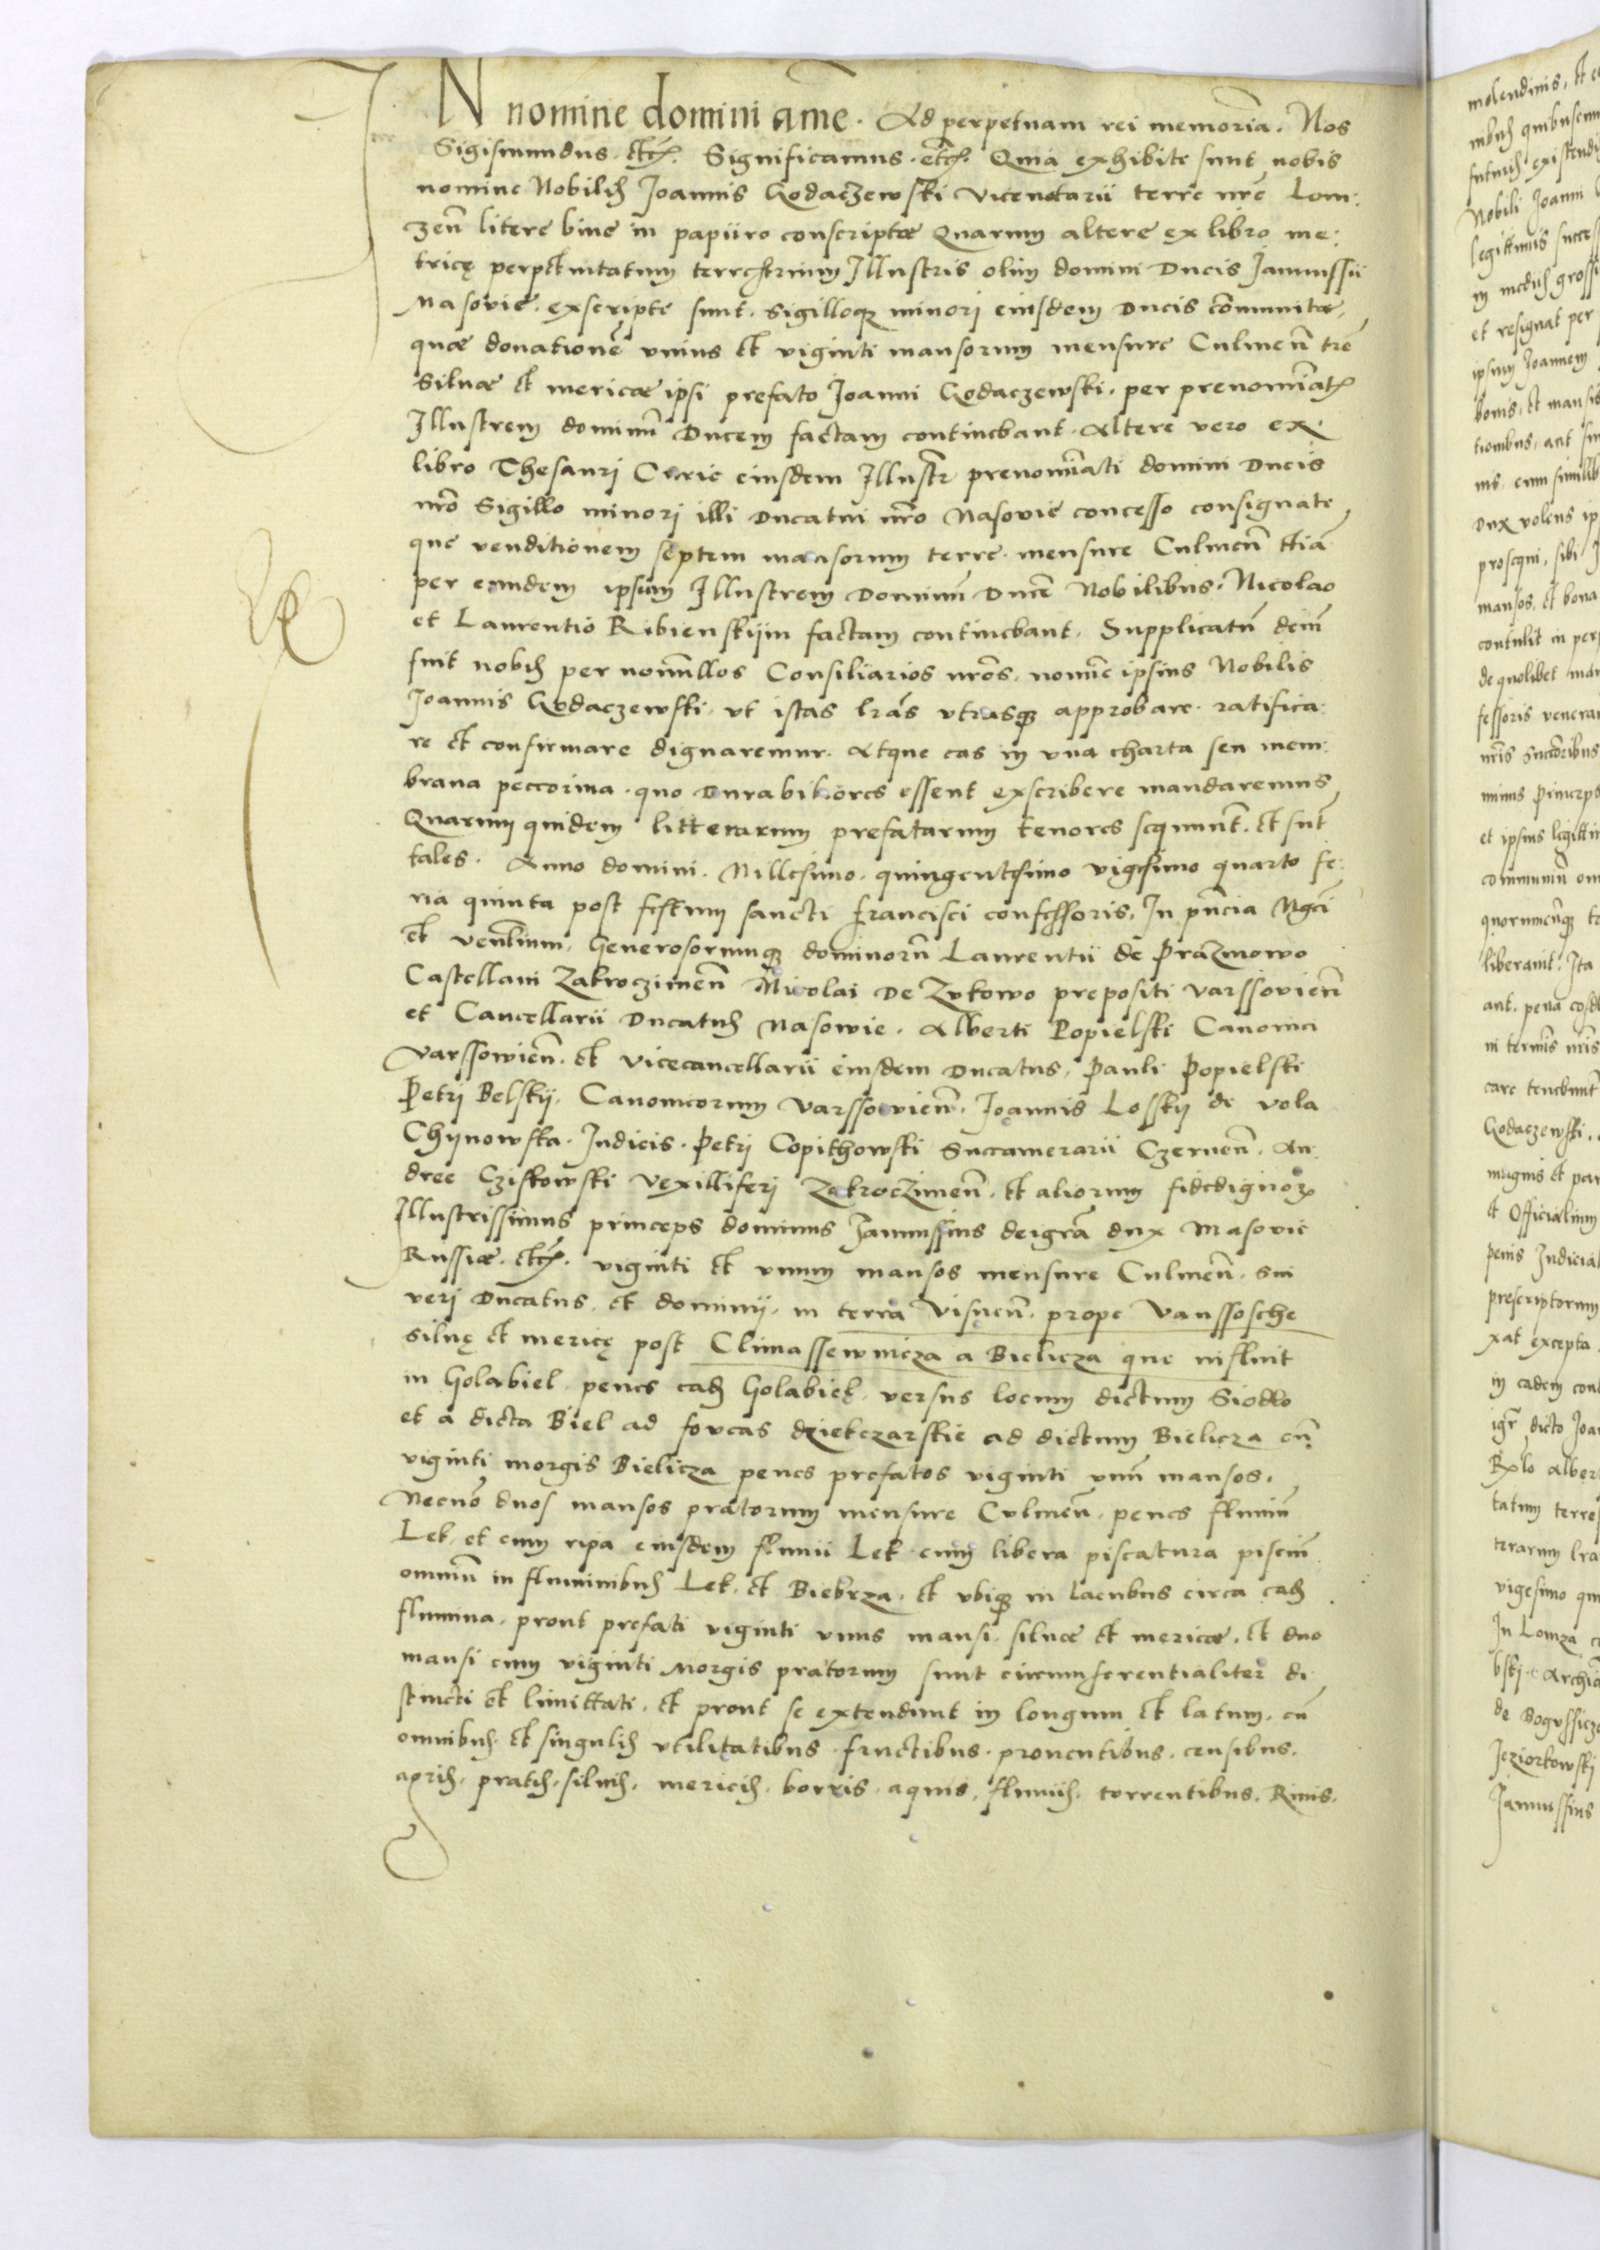 IN nomine domini ame. Ad perpetuam rei memoria. Nos
Sigismundus. etc. Significamus. etc. Quia exhibite sunt nobis
nomine Nobilis Joannis Godaczewski vicenotarii terre nre Lom:
zen litere bine in papiiro conscriptæ Quarum altere ex libro me:
tricę perpetuitatum terrestrium Illustris olim domini Ducis Janussii
Masovie. exscripte sunt. sigilloq minori eiusdem Ducis communitæ,
quæ donatione unius et viginti mansorum mensure Culmen tre
siluæ et mericæ ipsi prefato Joanni Godaczewski. per prenominat
Illustrem dominu Ducem factam continebant. Altere vero ex.
libro Thesauri Curie eiusdem Illustr prenominati domini Ducis
nro Sigillo minori illi Ducatui nro Masovie concesso consignate
que venditionem septem mansorum terre. mensure Culmen etia
per eundem ipsum Illustrem Dominu Duce Nobilibus. Nicolao
et Laurentio Ribienskiim factam continebant. Supplicatu dein
fuit nobis per nonnullos Consiliarios nros. nomine ipsius Nobilis
Joannis Godaczewski. ut istas lras utrasq approbare. ratifica:
re et confirmare dignaremur. Atque eas in una charta seu mem:
brana peccorina. quo Durabiliores essent exscribere mandaremus
Quarum quidem litterarum prefatarum tenores sequunt. et sunt
tales. Anno domini. Millesimo. quingentesimo vigesimo quarto fe:
ria quinta post festum sancti francisci confessoris. In pncia Mgci
et venlium. Generosorumq dominoru Laurentii de Prazmowo
Castellani Zakroczimen Nicolai De Zukowo prepositi varssovien
et Cancellarii Ducatus Masowie. Alberti Popielski Canonici
varssowien. et vicecancellarii eiusdem Ducatus. Pauli Popielski
Petri Belskij. Canonicorum varssovien. Joannis Losskij de vola
Chijnowska. Judicis. Petri Copithowski Succamerarii Czernen. An
dree Cziskowski vexilliferi Zakroczimen. et aliorum fidedignor
Illustrissimus princeps dominus Janussius deigra dux Masovie
Russiæ. etc. viginti et unum mansos mensure Culmen. sui
veri Ducatus. et dominij. in terra visnen. prope Vanssosche
siluę et mericę post Climassewnicza a Bielicza que influit
in Golabiel. penes eas Golabiel. versus locum dictum Siodlo
et a dicta Biel ad foveas dzietczarskie ad dictum Bielicza cu
viginti morgis Bielicza penes prefatos viginti unu mansos.
Necno duos mansos pratorum mensure Culmen. penes fluviu
Lek. et cum ripa eiusdem fluvii Lek. cum libera piscatura pisciu
omniu in fluminibus Lek. et Biebrza. et ubiq in lacubus circa eas
flumina. prout prefati viginti unus mansi. siluæ et mericæ. et duo
mansi cum viginti Morgis pratorum sunt circumferentialiter di
stincti et limittati. et prout se extendunt in longum et latum. cu
omnibus. et singulis utilitatibus. fructibus. proventibus. censibus.
agris. pratis. siluis. mericis. borris. aquis. fluviis. torrentibus. Rivis.